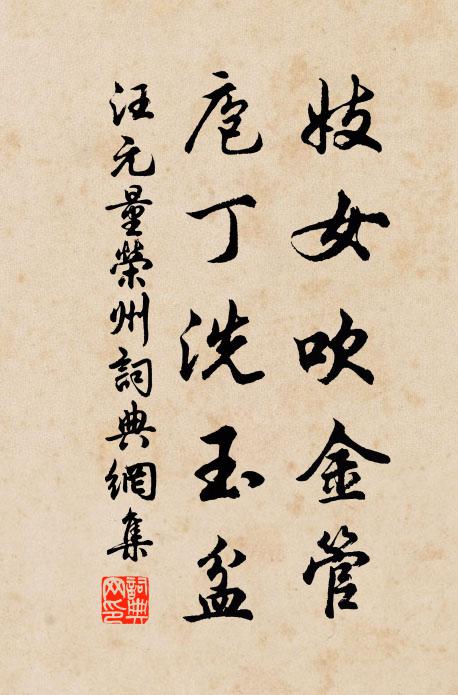 妓女吹金管
庖丁洗玉盆
汪元量榮州詞典網集
詞典网印